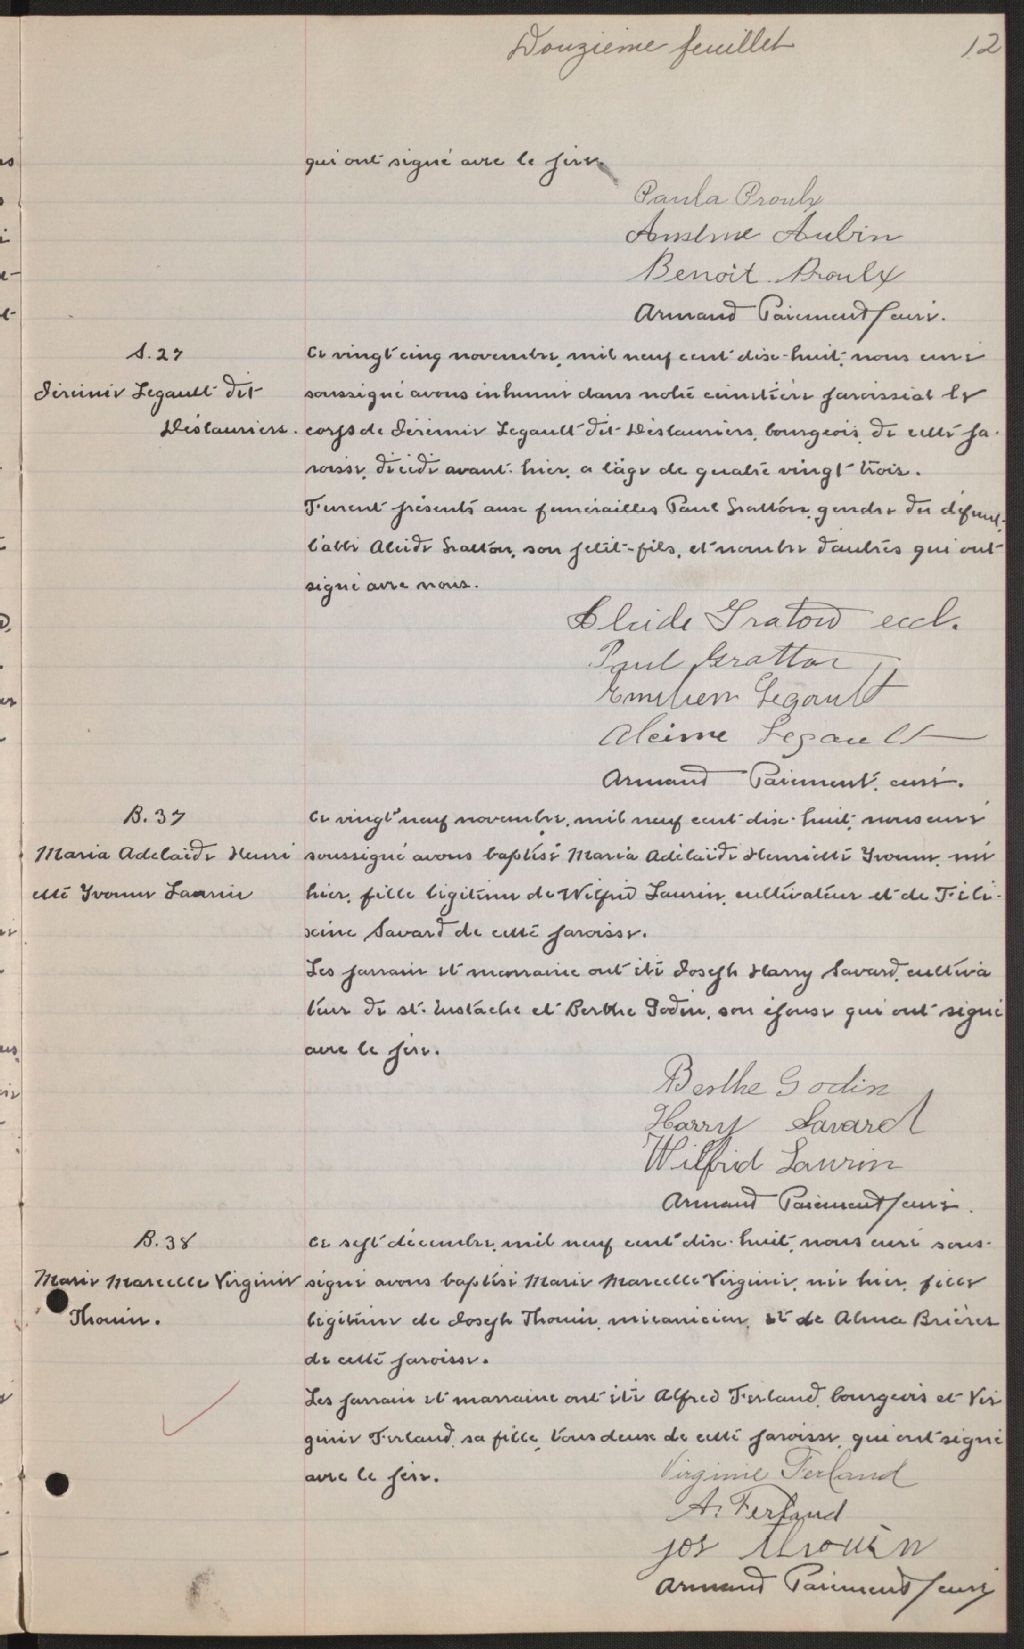 Douzième feuillet 12
qui ont signé avec le père.
Paula Proulx
Anselme Aubin
Benoit Proulx
Armand Paiement ptre curé.
S. 27
Jérémie Legault dit
Deslauriers.
Ce vingt cinq novembre, mil neuf cent dix-huit, nous curé
soussigné avons inhumé dans notre cimetière paroissial le
corps de Jérémie Legault dit Deslauriers, bourgeois, de cette pa-
roisse, décédé avant-hier, a l'âge de quatre vingt trois.
Furent présents aux funérailles Paul Gratton, gendre du défunt,
l'abbé Alcide Gratton, son petit-fils, et nombre d'autres qui ont
signé avec nous.
Alcide Gratton eccl.
Paul Gratton
Emilien Legault
Alcime Legault
Armand Paiement, curé.
B. 37
Maria Adélaide Henri
ette Yvonne Laurin
Ce vingt neuf novembre, mil neuf cent dix-huit, nous curé
soussigné avons baptisé Maria Adélaide Henriette Yvonne, née
hier, fille légitime de Wilfrid Laurin, cultivateur et de Féli-
xine Savard de cette paroisse.
Les parrain et marraine ont été Joseph Harry Savard, cultiva
teur de St. Eustache et Berthe Godin, son épouse qui ont signé
avec le père.
Berthe Godin
Harry Savard
Wilfrid Laurin
Armand Paiement ptre curé.
B. 38
Marie Marcelle Virginie
Thouin.
Ce sept décembre, mil neuf cent dix-huit, nous curé sous-
signé avons baptisé Marie Marcelle Virginie, née hier, fille
légitime de Joseph Thouin, mécanicien, et de Alma Brières
de cette paroisse.
Les parrain et marraine ont été Alfred Ferland, bourgeois et Vir
ginie Ferland, sa fille, tous deux de cette paroisse, qui ont signé
avec le père.
Virginie Ferland
A. Ferland
Jos Thouin
Armand Paiement ptre curé